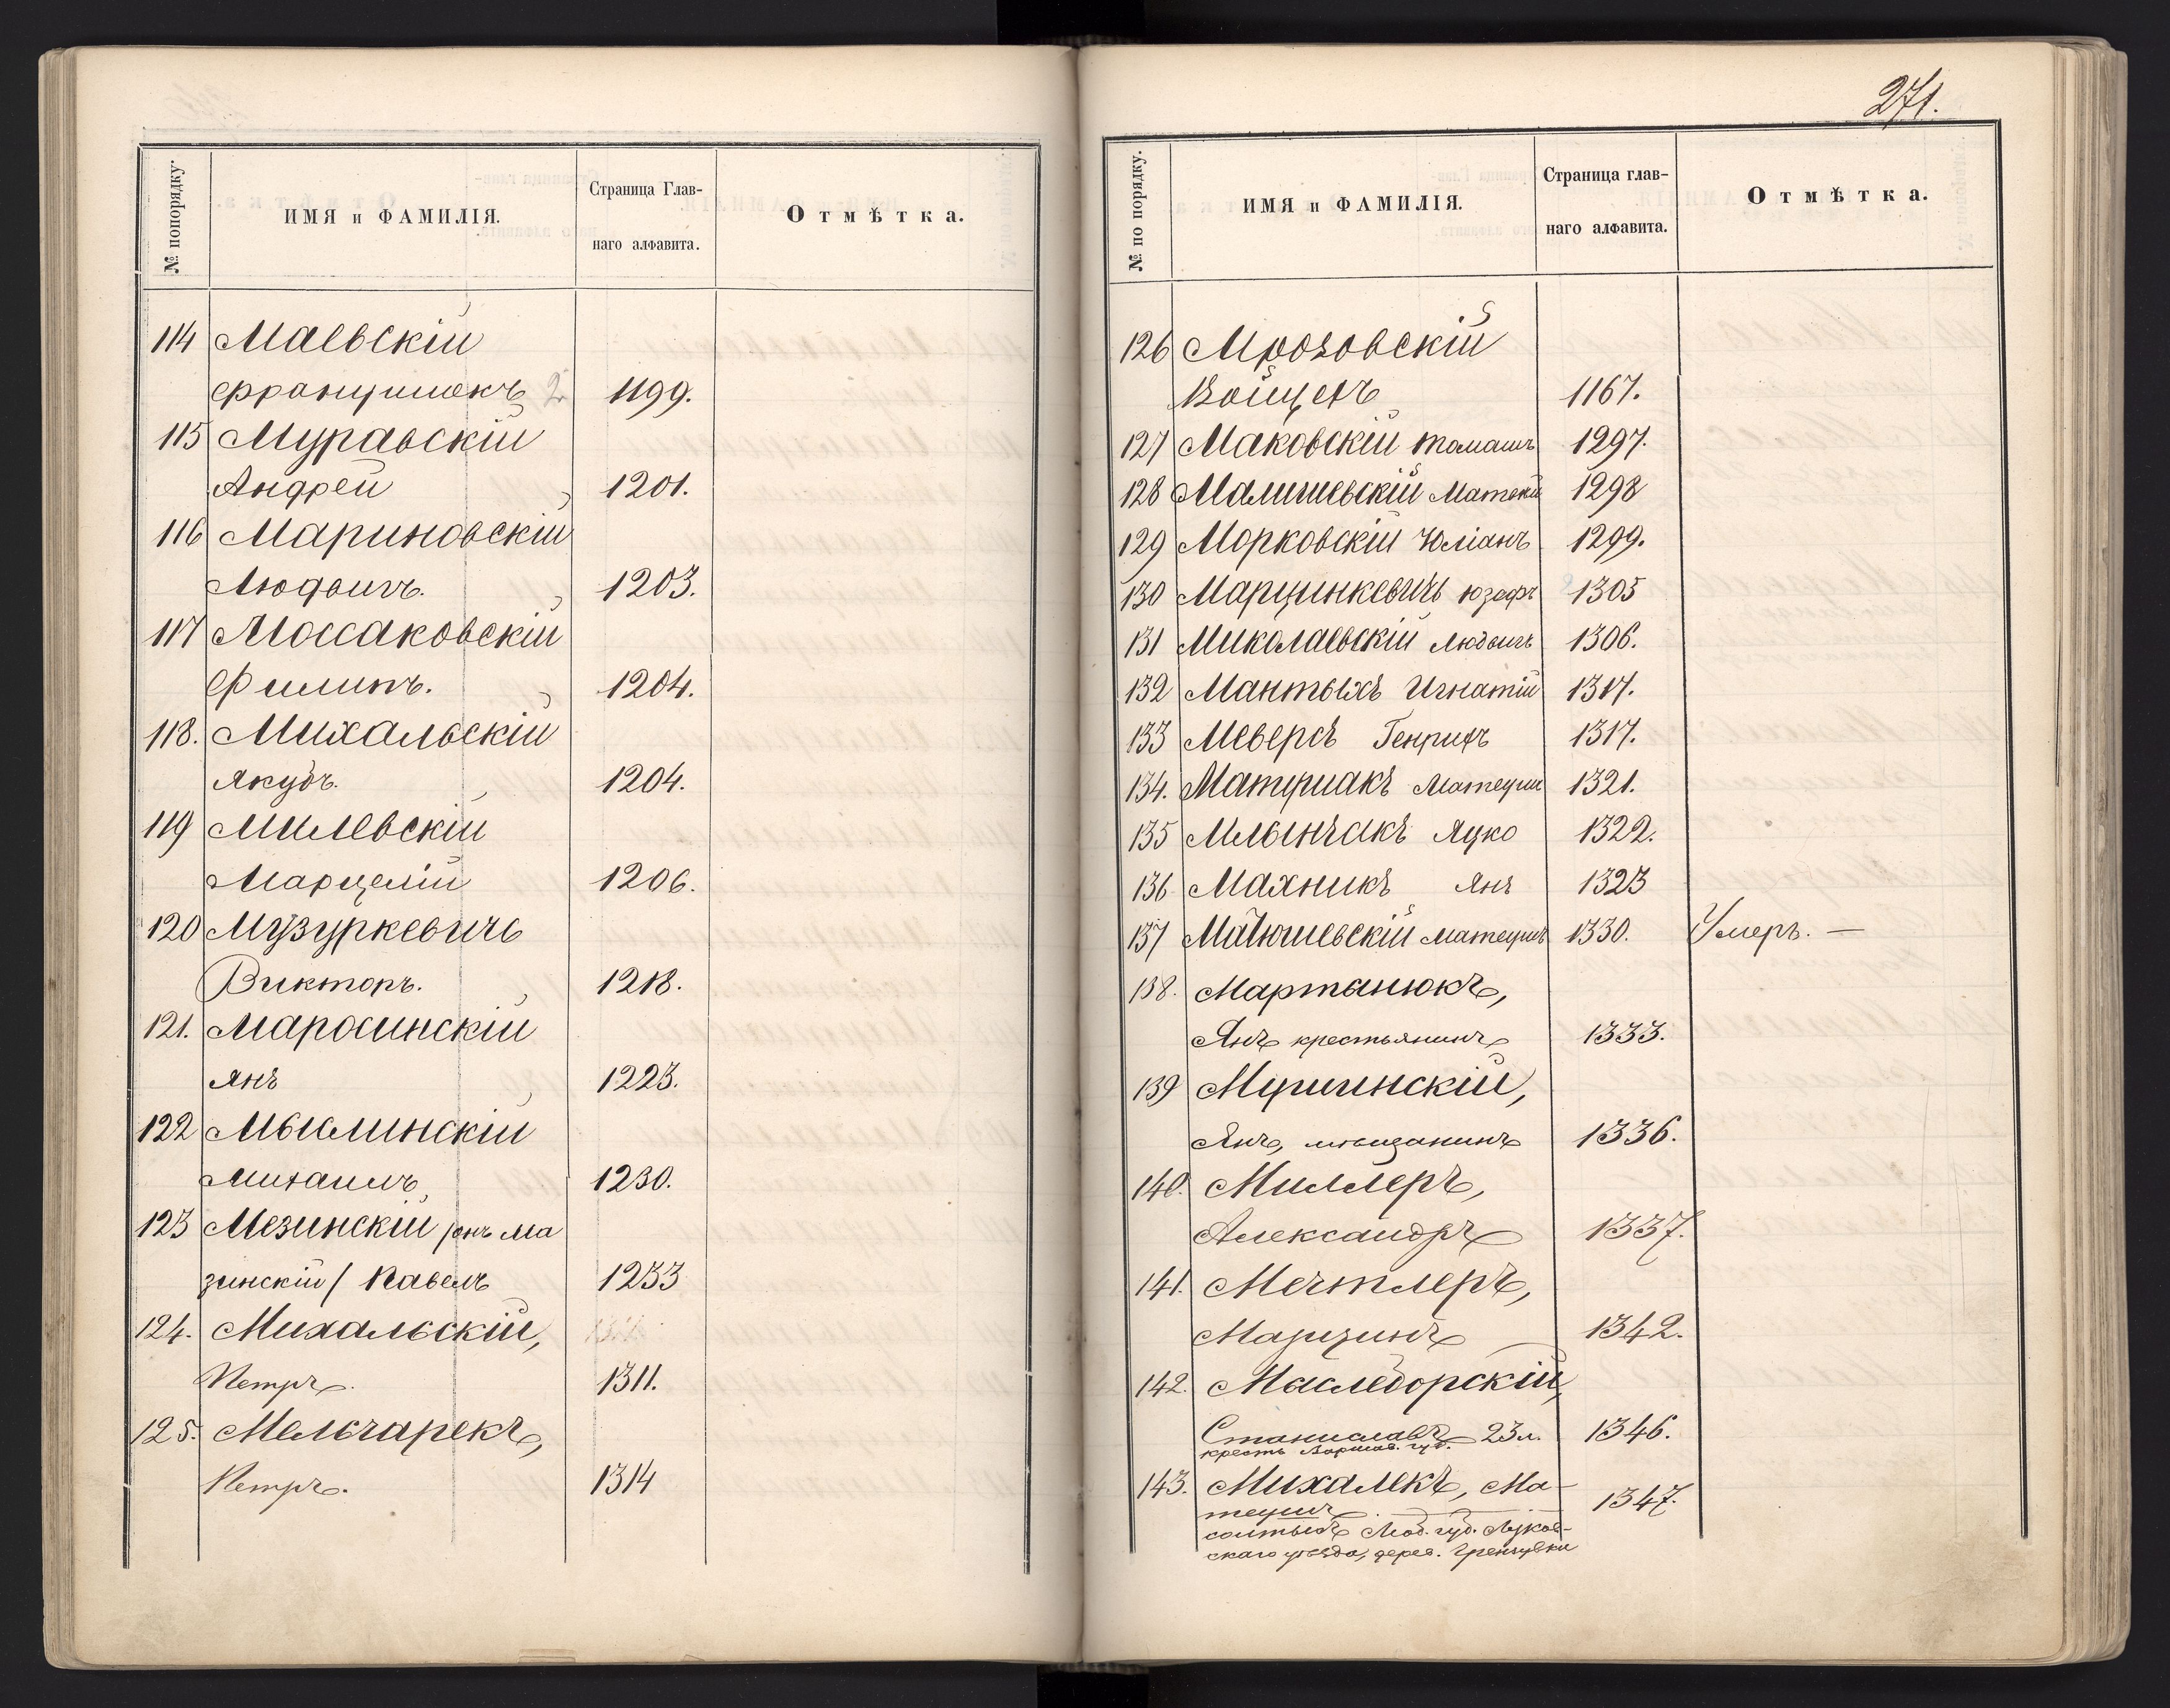 № попорядку.
ИМЯ и ФАМИЛІЯ.
Страница Глав-
наго алфавита.
Отмѣтка.
114 Маевскій
Францишекъ 2 1199.
115 Муравскій
Андрей 1201.
116 Мариновскій
Людвигъ. 1203.
117 Моссаковскій
Филипъ. 1204.
118. Михальскій
Якубъ. 1204.
119 Милевскій
Марцелій 1206.
120 Музуркевичъ
Викторъ. 1218.
121. Маросинскій
Янъ 1223.
122 Мыслинскій
Михаилъ 1230.
123 Мезинскій /онъ Ма
зинскій/ Павелъ 1233
124. Михальскій,
Петръ. 1311.
125. Мельчарекъ,
Петръ. 1314
271.
№ по порядку.
ИМЯ и ФАМИЛІЯ.
Страница глав-
наго алфавита.
Отмѣтка.
126 Мрозовскій
Войцехъ 1167.
127 Маковскій Томашъ 1297.
128 Малишевскій 1298
129 Морковскій Юліанъ 1299.
130 Марцинкевичъ Юзефъ 1305
131 Миколаевскій Людвигъ 1306.
132 Мантыхъ Игнатій 1317.
133 Меверсъ Генрихъ 1317.
134. Матушакъ Матеушъ 1321.
135 Млынчакъ Яцко 1322.
136 Махникъ Янъ 1323
137 Матюшевскій Матеушъ 1330. Умеръ. —
138. Мартанюкъ,
Янъ крестьянинъ 1333.
139 Мушинскій,
Янъ, мѣщанинъ 1336.
140. Миллеръ,
Александръ 1337.
141. Мечтлеръ,
Марцинъ 1342.
142. Маследорскій,
Станиславъ 23 л. 1346.
крестъ Варшав. губ.
143. Михалекъ, Ма-
теушъ 1347.
солтысъ Люб. губ. Луков-
скаго уѣзда, дерев.